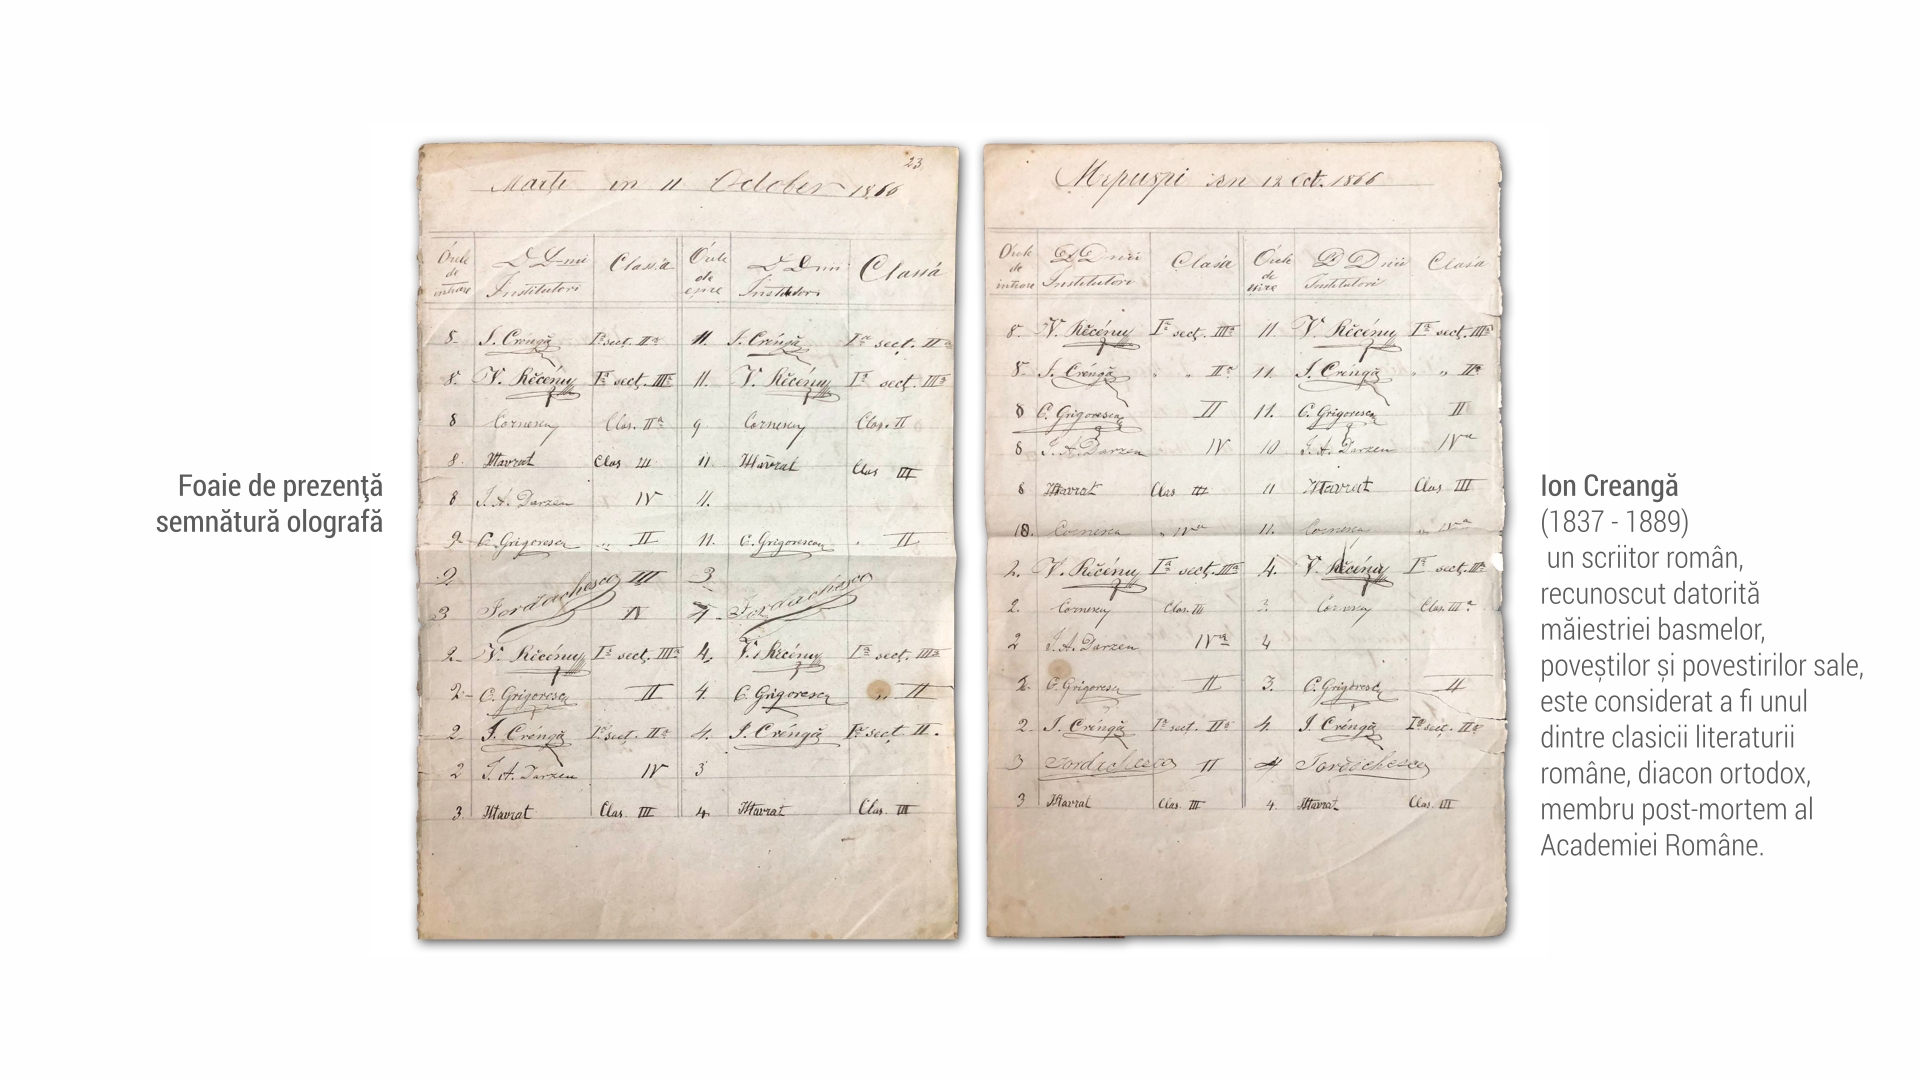 Foaie de prezenţă
semnătură olografă
23
Marți in 11 October 1866
Órele de intrare D D-nii Institutori Classa Órele de eșire D Dnii Institutori Classa
8. I. Créngă Iª sect. IIª 11. I. Créngă Iª secț. IIª
8. V. Rĕcénu Iª secț. IIIª 11. V. Rĕcénu Iª secț. IIIª
8 Cornescu Clas. IIª 9 Cornescu Clas. II
8. Mavrat Clas III 11. Mavrat Clas III
8 I. A. Darzeu IV 11.
9 C. Grigorescu „ II 11. C. Grigorescu „ II
2 Iordachescu III 3 Iordachescu
3 IV 4
2 V. Rĕcénu Iª secț. IIIª 4. V. Rĕcénu Iª secț. IIIª
2 C. Grigorescu II 4 C. Grigorescu „ II
2. I. Créngă Iª sect. IIª 4. I. Créngă Iª sect II.
2 I. A. Darzeu IV 3
3. Mavrat Clas. III 4. Mavrat Clas. III
12 Oct. 1866
Órele de intrare D Dnii Institutori Clasa Órele de eșire D Dnii Institutori Clasa
8. V. Rĕcénu Iª secț. IIIª 11. V. Rĕcénu Iª secț. IIIª
8. I. Créngă „ „ IIª 11. I. Créngă „ „ IIª
8 C. Grigorescu II 11. C. Grigorescu II
8 I. A. Darzeu IV 10 I. A. Darzeu IVª
8 Mavrat Clas III 11 Mavrat Clas III
10. Cornescu „ IVª 11. Cornescu „ IVª
2. V. Rĕcénu Iª secț. IIIª 4. V. Rĕcénu Iª secț. IIIª
2. Cornescu Clas. III 3. Cornescu Clas. IIIª
2 I. A. Darzeu IVª 4
2. C. Grigorescu II 3. C. Grigorescu II
2. I. Créngă Iª sect. IIª 4. I. Créngă Iª sect. IIª
3 Iordachescu II 4 Iordachescu
3 Mavrat Clas. III 4. Mavrat Clas. III
Ion Creangă
(1837 - 1889)
un scriitor român,
recunoscut datorită
măiestriei basmelor,
poveștilor și povestirilor sale,
este considerat a fi unul
dintre clasicii literaturii
române, diacon ortodox,
membru post-mortem al
Academiei Române.